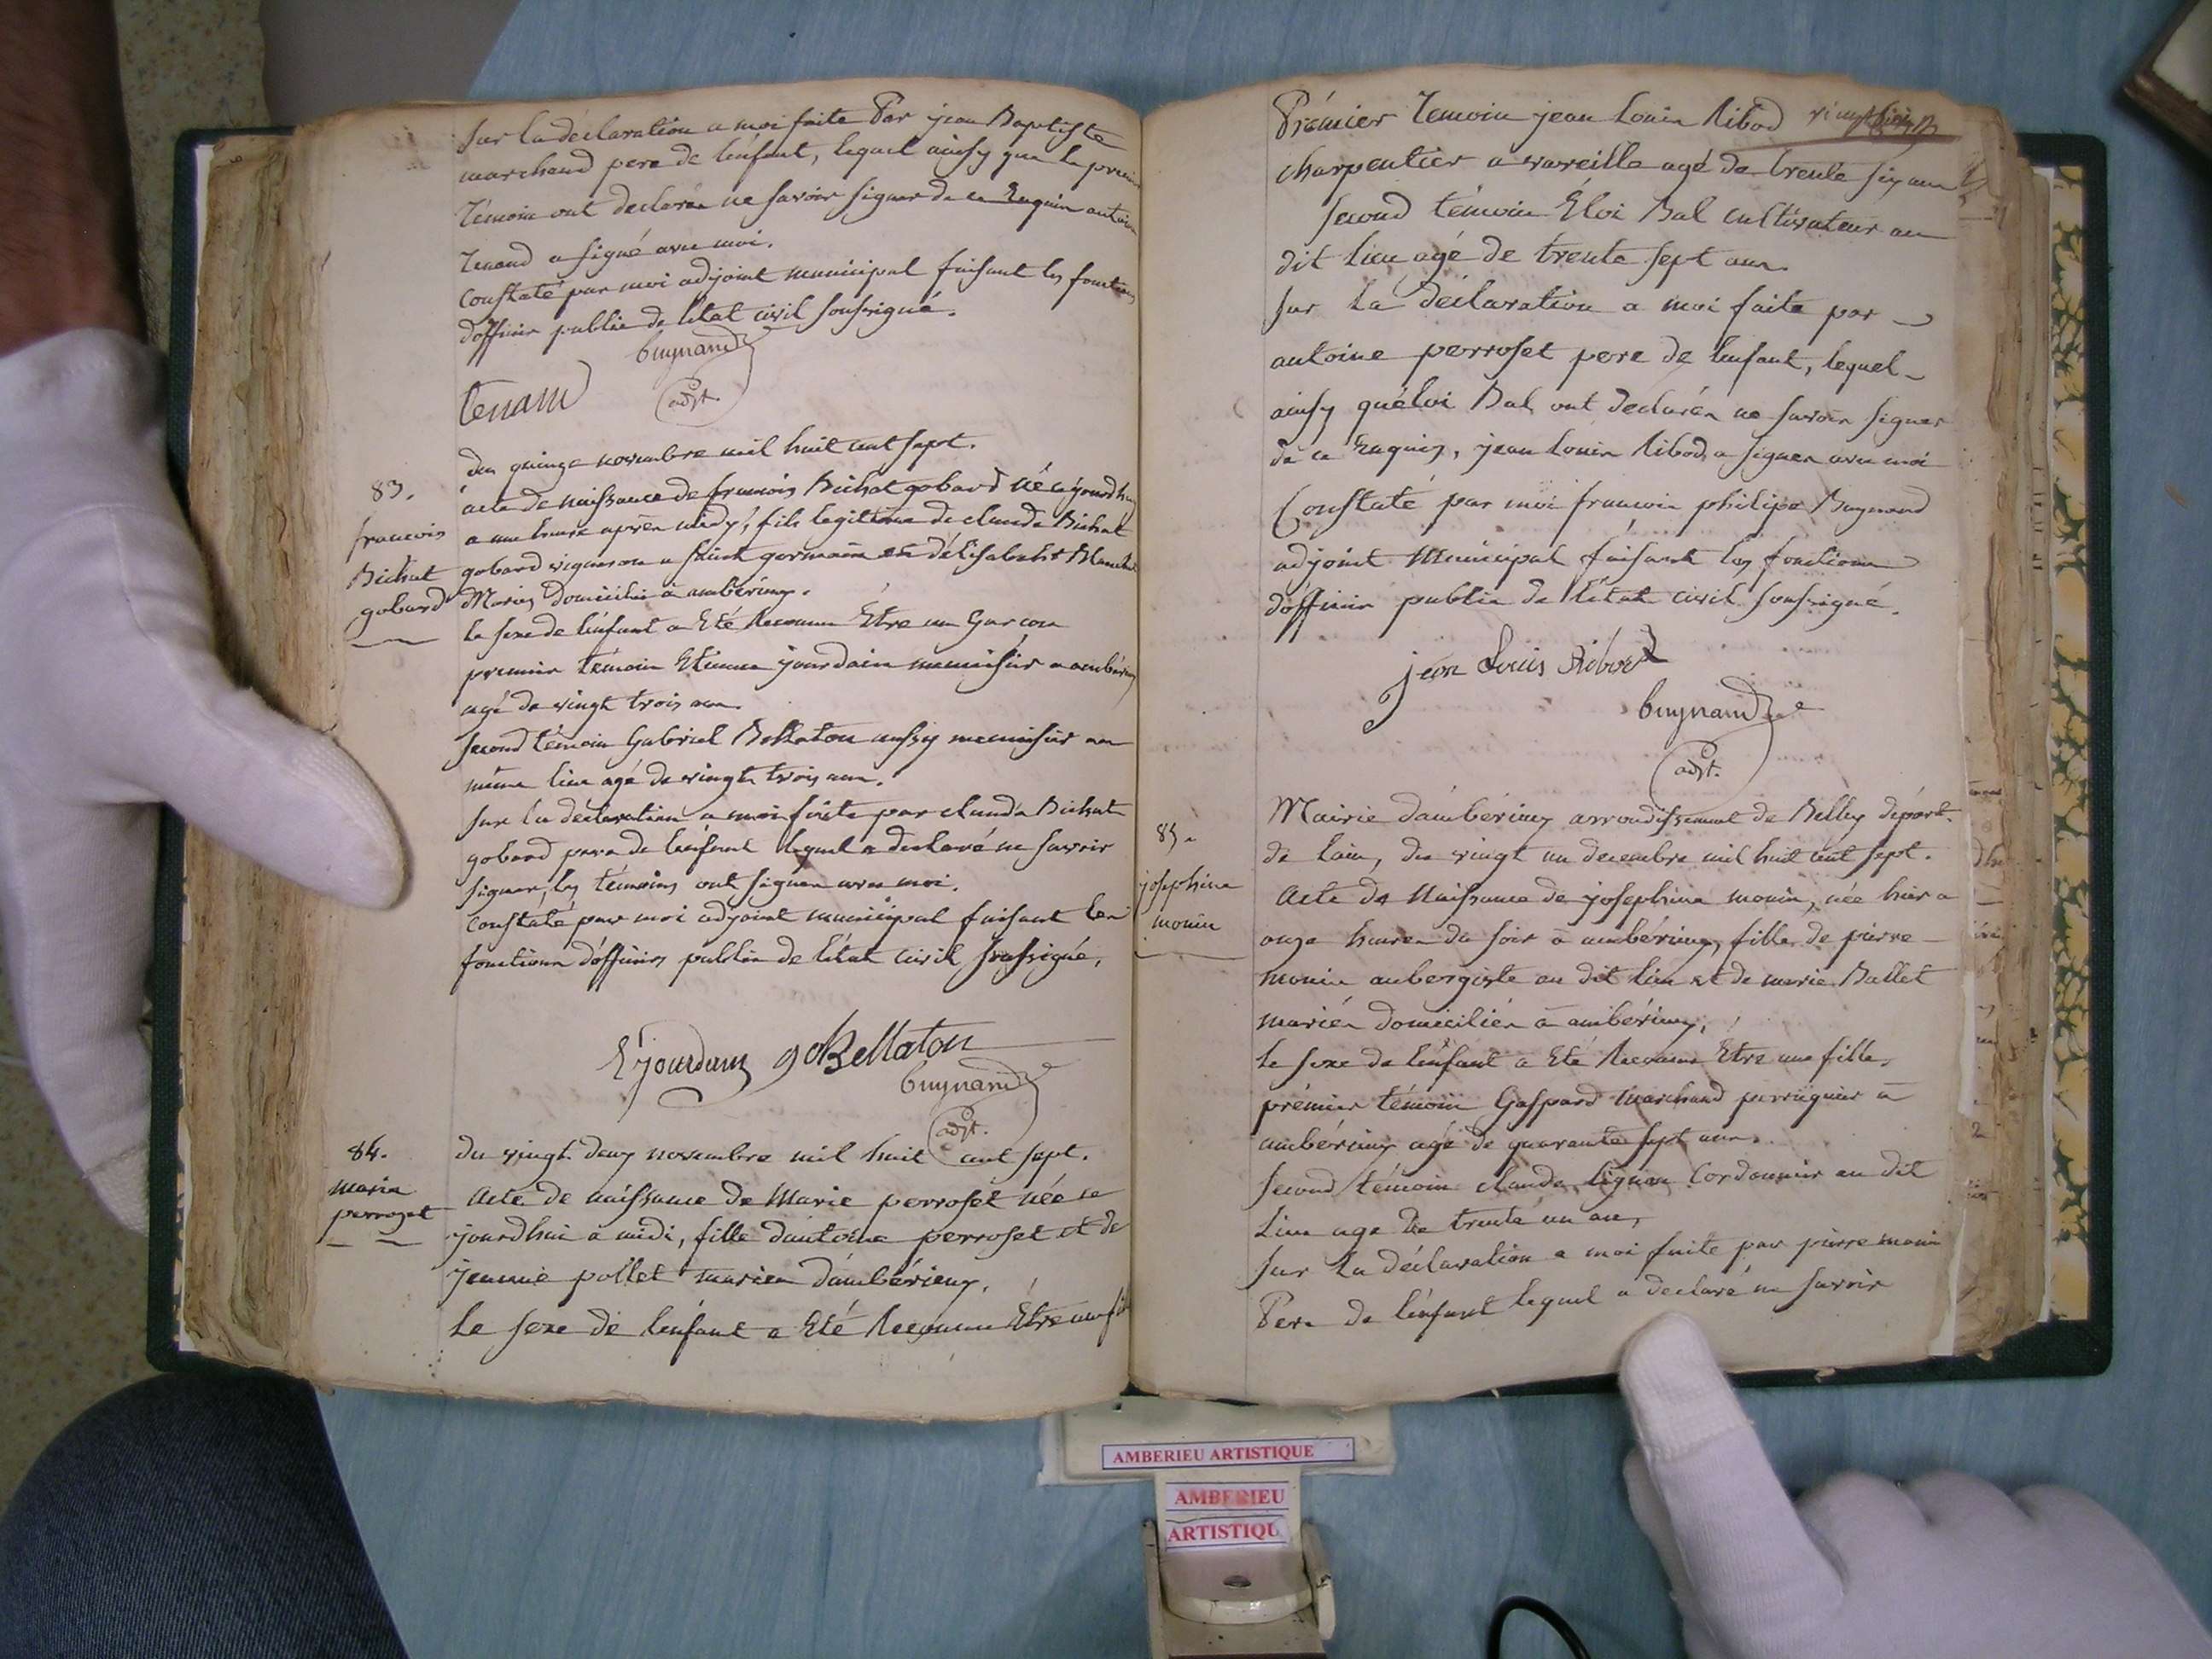 Sur la déclaration a moi faite Par jean Baptiste
marchand pere de l'énfant, lequel ainsy que le premier
témoin ont declarés ne savoir signer de ce Enquis antoine
Tenand a signé avec moi.
Constaté par moi adjoint municipal faisant les fonctions
d'officier public de l'état civil soussigné.
buynand
adjt.
tenand
du quinze novembre mil huit cent sept.
83.
francois
Bichat
gobard
acte de naissance de francois Bichat gobard né ajourdhuy
a une heure après midy, fils legitime de claude Bichat
gobard vigneron a saint germain et d'élisabeht
Mariés domiciliés à ambérieux.
le sexe de l'énfant a Eté Reconnu Etre un Garcon
premier témoin Etienne jourdain menuisier a ambérieux
agé de vingt trois ans.
second témoin Gabriel Bellaton aussy menuisier au
même lieu agé de vingt trois ans.
sur la déclaration a moi faite par claude Bichat
gobard pere de l'énfant lequel a declaré ne savoir
signer, les témoins ont signer avec moi.
Constaté par moi adjoint municipal faisant les
fonctions d'officier public de l'état civil soussigné.
E jourdain g Bellaton
buynand
adjt.
84.
marie
perrozet
du vingt deux novembre mil huit cent sept.
Acte de naissance de Marie perroset née ce
jourdhui a midi, fille d'antoine perroset et de
jeanne pollet mariés d'ambérieux.
Le sexe de l'énfant a Eté Reconnu Etre une
Prémier Temoin jean Louis Ribod
charpentier a vareille agé de trente six ans
second témoin Éloi Bal cultivateur au
dit lieu agé de trente sept ans.
sur la déclaration a moi faite par
antoine perroset pere de l'enfant, lequel
ainsy qu'éloi Bal ont declarés ne savoir signer
de ce Enquis, jean Louis Ribod, a signer avec moi
Constaté par moi francois philipe Buynand
adjoint municipal faisant les fonctions
d'officier public de l'état civil soussigné.
jean Louis Ribod
buynand
adjt.
85.
josephine
monin
Mairie d'ambérieux arrondissement de Belley départ.
de lain, du vingt un decembre mil huit cent sept.
Acte de Naissance de josephine monin, née hier a
onze heures du soir à ambérieux, fille de pierre
monin aubergiste au dit lieu et de marie Ballet
mariés domiciliés à ambérieux.
le sexe de l'énfant a Eté Reconnu Etre une fille,
prémier témoin Gaspard Marchand perruquier à
ambérieux agé de quarante sept ans.
second témoin claude Cordonnier au dit
Lieu age de trente un an,
sur la déclaration a moi faite par pierre monin
Pere de l'énfant lequel a declaré ne savoir
AMBERIEU ARTISTIQUE
AMBERIEU
ARTISTIQU